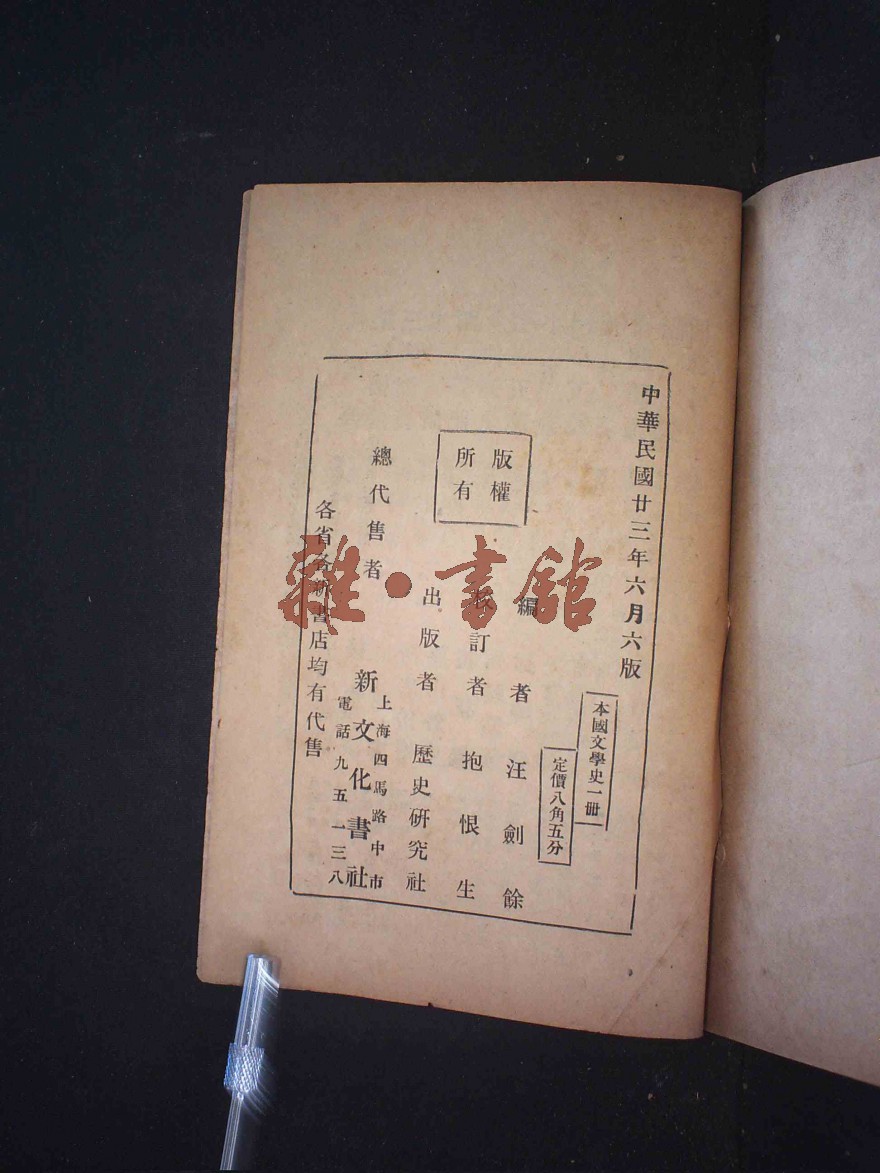 中華民國廿三年六月六版
本國文學史一冊
定價八角五分
編者 汪劍餘
校訂者 抱恨生
版權
所有
出版者 歷史研究社
總代售者
上海四馬路中市
新文化書社
電話九五一三八
各省各埠書店均有代售
雜·書館